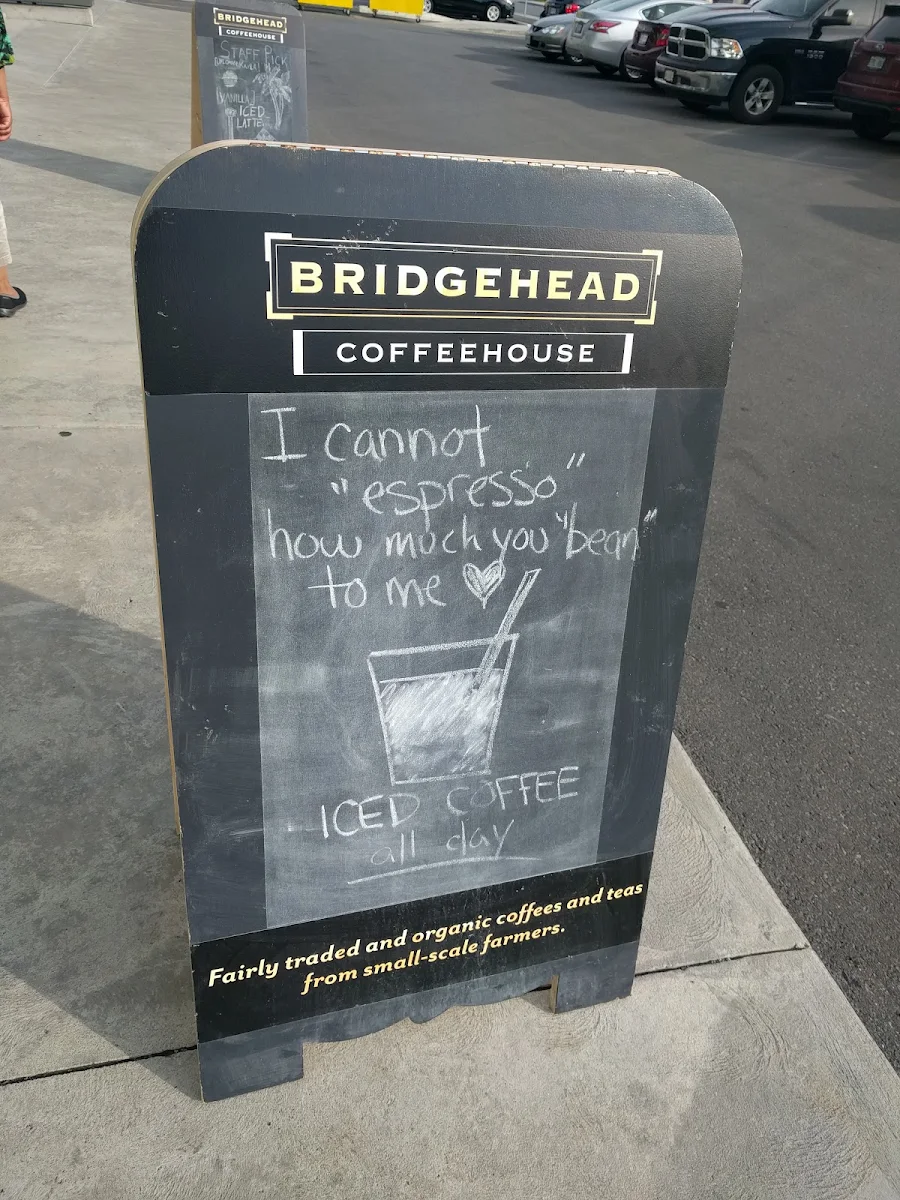 BRIDGEHEAD
COFFEEHOUSE
STAFF PICK
VANILLA
ICED
LATTE
BRIDGEHEAD
COFFEEHOUSE
I cannot
"espresso"
how much you "bean"
to me
ICED COFFEE
all day
Fairly traded and organic coffees and teas
from small-scale farmers.